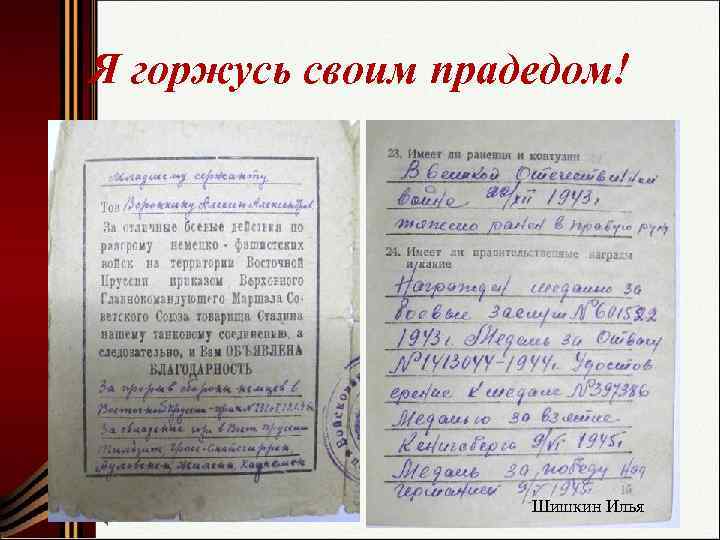 Я горжусь своим прадедом!
Младшему сержанту
Тов Ворожкину Алексею Александров
За отличные боевые действия по
разгрому немецко-фашистских
войск на территории Восточной
Пруссии приказом Верховного
Главнокомандующего Маршала Со-
ветского Союза товарища Сталина
нашему танковому соединению, а
следовательно, и Вам ОБЪЯВЛЕНА
БЛАГОДАРНОСТЬ
За прорыв обороны немцев в
Восточной Пруссии
За овладение в Вост Пруссии
Тильзит, Гросс-Скайсгиррен,
Войсковая
23. Имеет ли ранения и контузии
В великой Отечественной
войне 22/XII 1943г
тяжело ранен в правую руку
24. Имеет ли правительственные награды
и какие
Награжден медалью за
боевые заслуги № 601522
1943г. Медаль за Отвагу
№ 1413044-1944г. Удостов
ерение к медале № 397386
Медалью за взятие
Кенигсберга 9/VI 1945г
Медаль за победу над
германией 9/V 1945г
15
Шишкин Илья